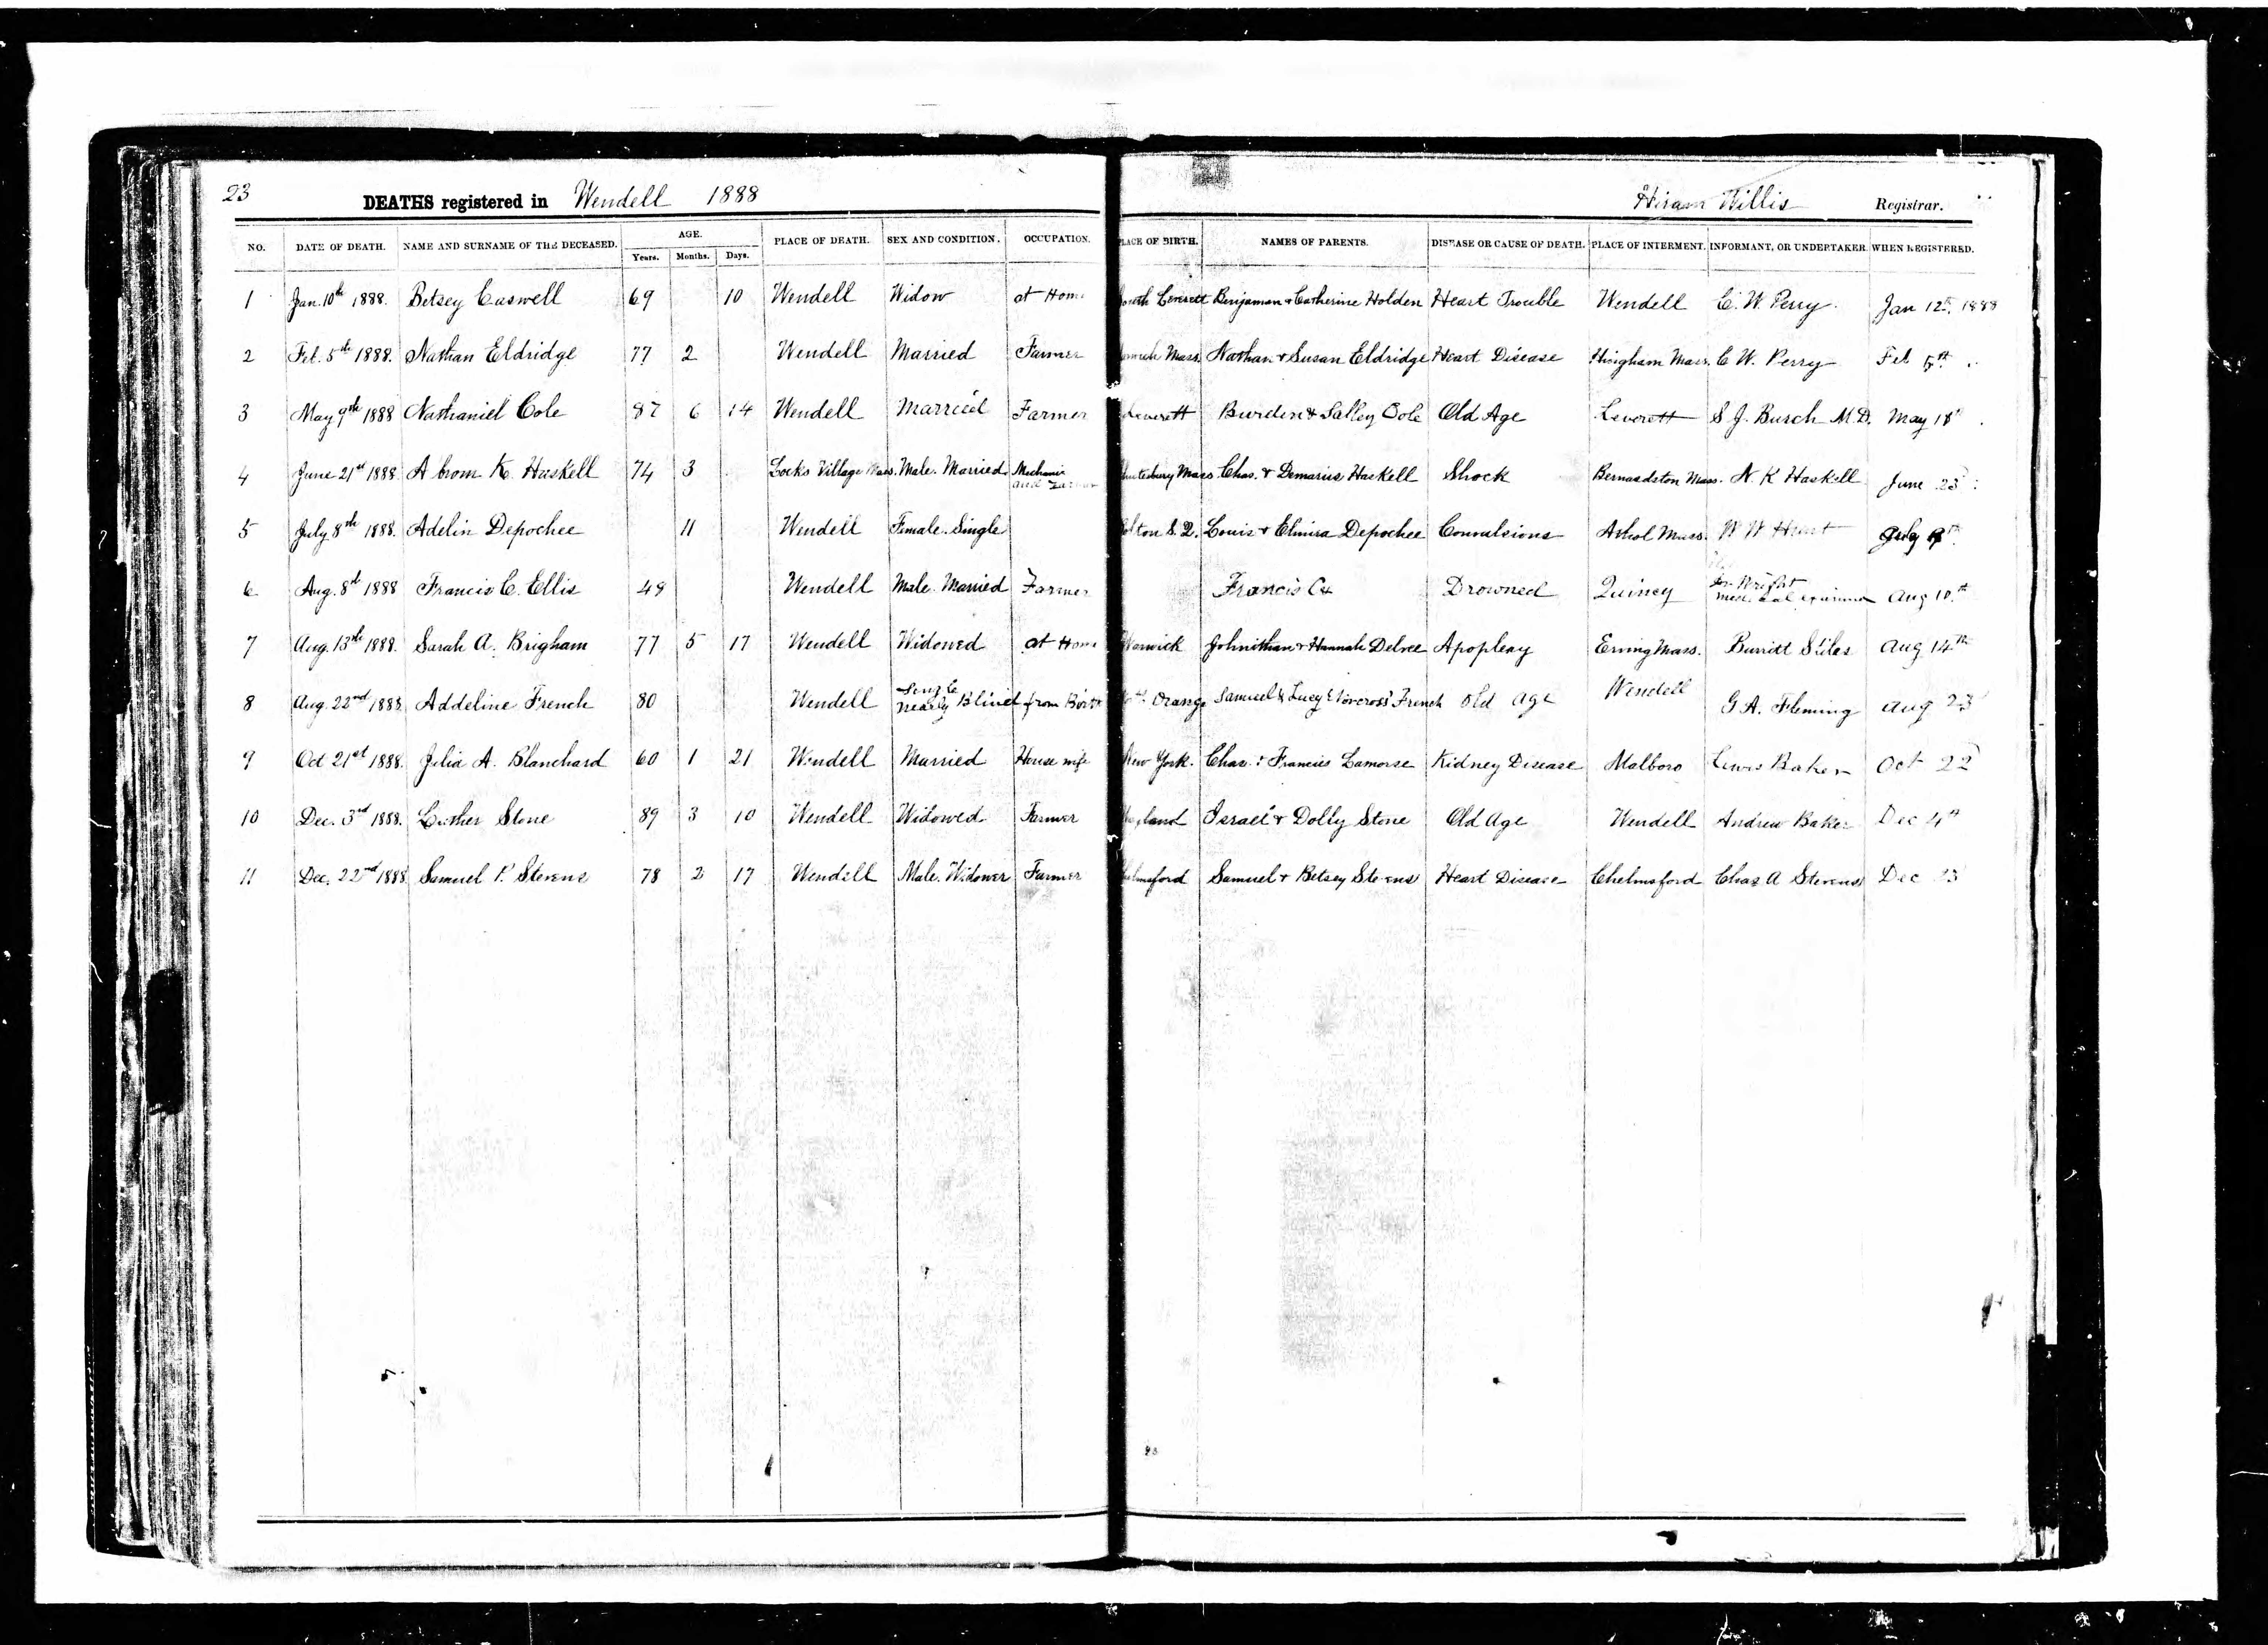 23 DEATHS registered in Wendell 1888 Hiram Willis Registrar.
NO. DATE OF DEATH. NAME AND SURNAME OF THE DECEASED. AGE. Years. Months. Days. PLACE OF DEATH. SEX AND CONDITION. OCCUPATION. PLACE OF BIRTH. NAMES OF PARENTS. DISEASE OR CAUSE OF DEATH. PLACE OF INTERMENT. INFORMANT, OR UNDERTAKER. WHEN REGISTERED.
1 Jan. 10th 1888. Betsey Caswell 69 10 Wendell Widow at Home South Leverett Benjaman & Catherine Holden Heart Trouble Wendell C. W. Perry. Jan 12th, 1888
2 Feb. 5th 1888. Nathan Eldridge 77 2 Wendell Married Farmer Mass. Nathan & Susan Eldridge Heart Disease Hingham Mass. C W. Perry Feb 5th
3 May 9th 1888 Nathaniel Cole 87 6 14 Wendell Married Farmer Leverett Burden & Salley Cole Old Age Leverett S. J. Burch M.D. May 18th
4 June 21st 1888 Abrom K. Haskell 74 3 Locks Village Mass. Male. Married Mechanic and Farmer Shutesbury Mass Chas. & Demarius Haskell Shock Bernardston Mass. N. K Haskell June 23
5 July 8th 1888. Adelin Depochee 11 Wendell Female. Single Louis & Elmira Depochee Convulsions Athol Mass. W W July 9th
6 Aug. 8th 1888 Francis C. Ellis 49 Wendell Male. Married Farmer Francis Drowned Quincy Dr. Wright Medical Examiner Aug 10th
7 Aug. 13th 1888. Sarah A. Brigham 77 5 17 Wendell Widowed at Home Warwick Johnithan & Hannah Delvee Apoplexy Erving Mass. Burritt Stiles Aug 14th
8 Aug. 22nd 1888. Addeline French 80 Wendell Single nearly Blind from Birth Orange Samuel & Lucy Norcross French Old Age Wendell G. A. Fleming Aug 23
9 Oct 21st 1888. Julia A. Blanchard 60 1 21 Wendell Married House wife New York. Chas. & Francies Lamorse Kidney Disease Malboro Lewis Baker Oct 22
10 Dec. 3rd 1888. Luther Stone 89 3 10 Wendell Widowed Farmer Wayland Israel & Dolly Stone Old Age Wendell Andrew Baker Dec 4th
11 Dec. 22nd 1888 Samuel P. Stevens 78 2 17 Wendell Male. Widower Farmer Chelmsford Samuel & Betsey Stevens Heart Disease Chelmsford Chas A Stevens Dec 23